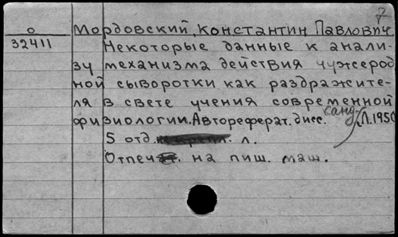 7
о Мордовский, Константин Павлович
32411 Некоторые данные к анали-
зу механизма действия чужерод
ной сыворотки как раздражите-
ля в свете учения современной
физиологии. Автореферат. дисс. канд. Л. 1950
5 отд. л.
Отпеч. на пиш. маш.